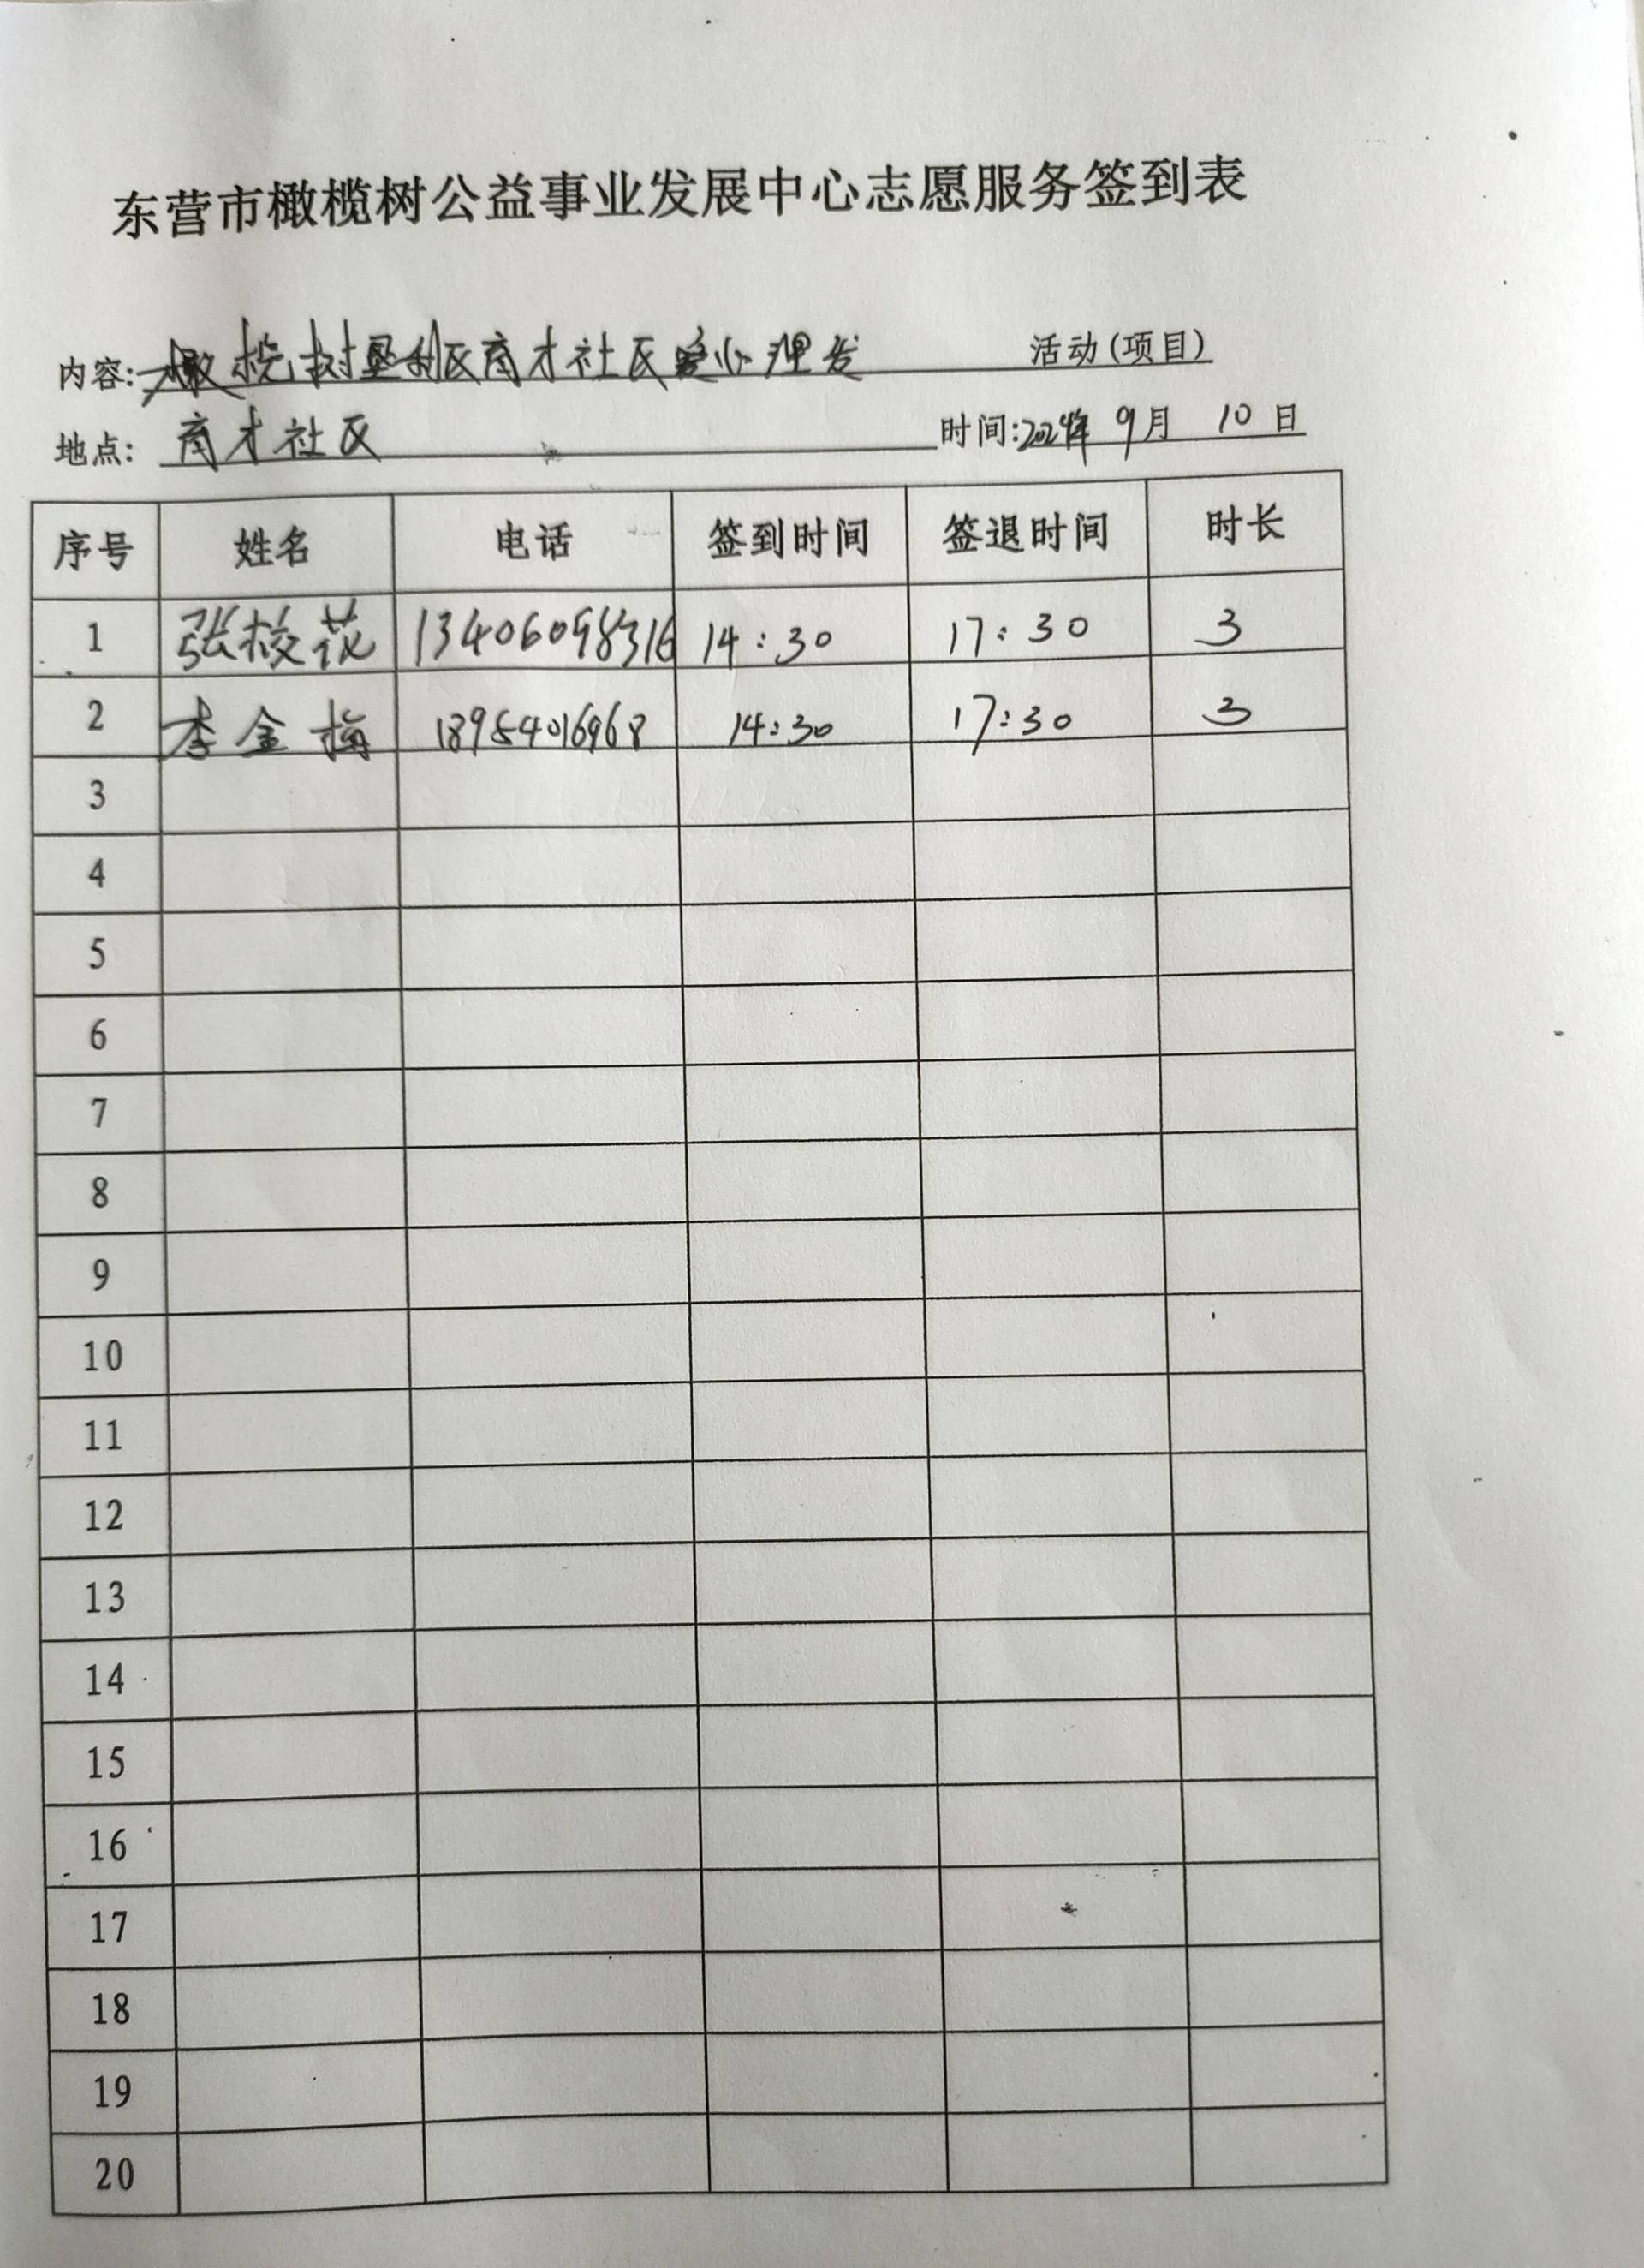 东营市橄榄树公益事业发展中心志愿服务签到表
内容: 橄榄树垦利区育才社区爱心理发 活动(项目)
地点: 育才社区 时间:2024年 9月 10日
序号 姓名 电话 签到时间 签退时间 时长
1 张校花 13406098316 14:30 17:30 3
2 李金梅 18954016968 14:30 17:30 3
3
4
5
6
7
8
9
10
11
12
13
14
15
16
17
18
19
20